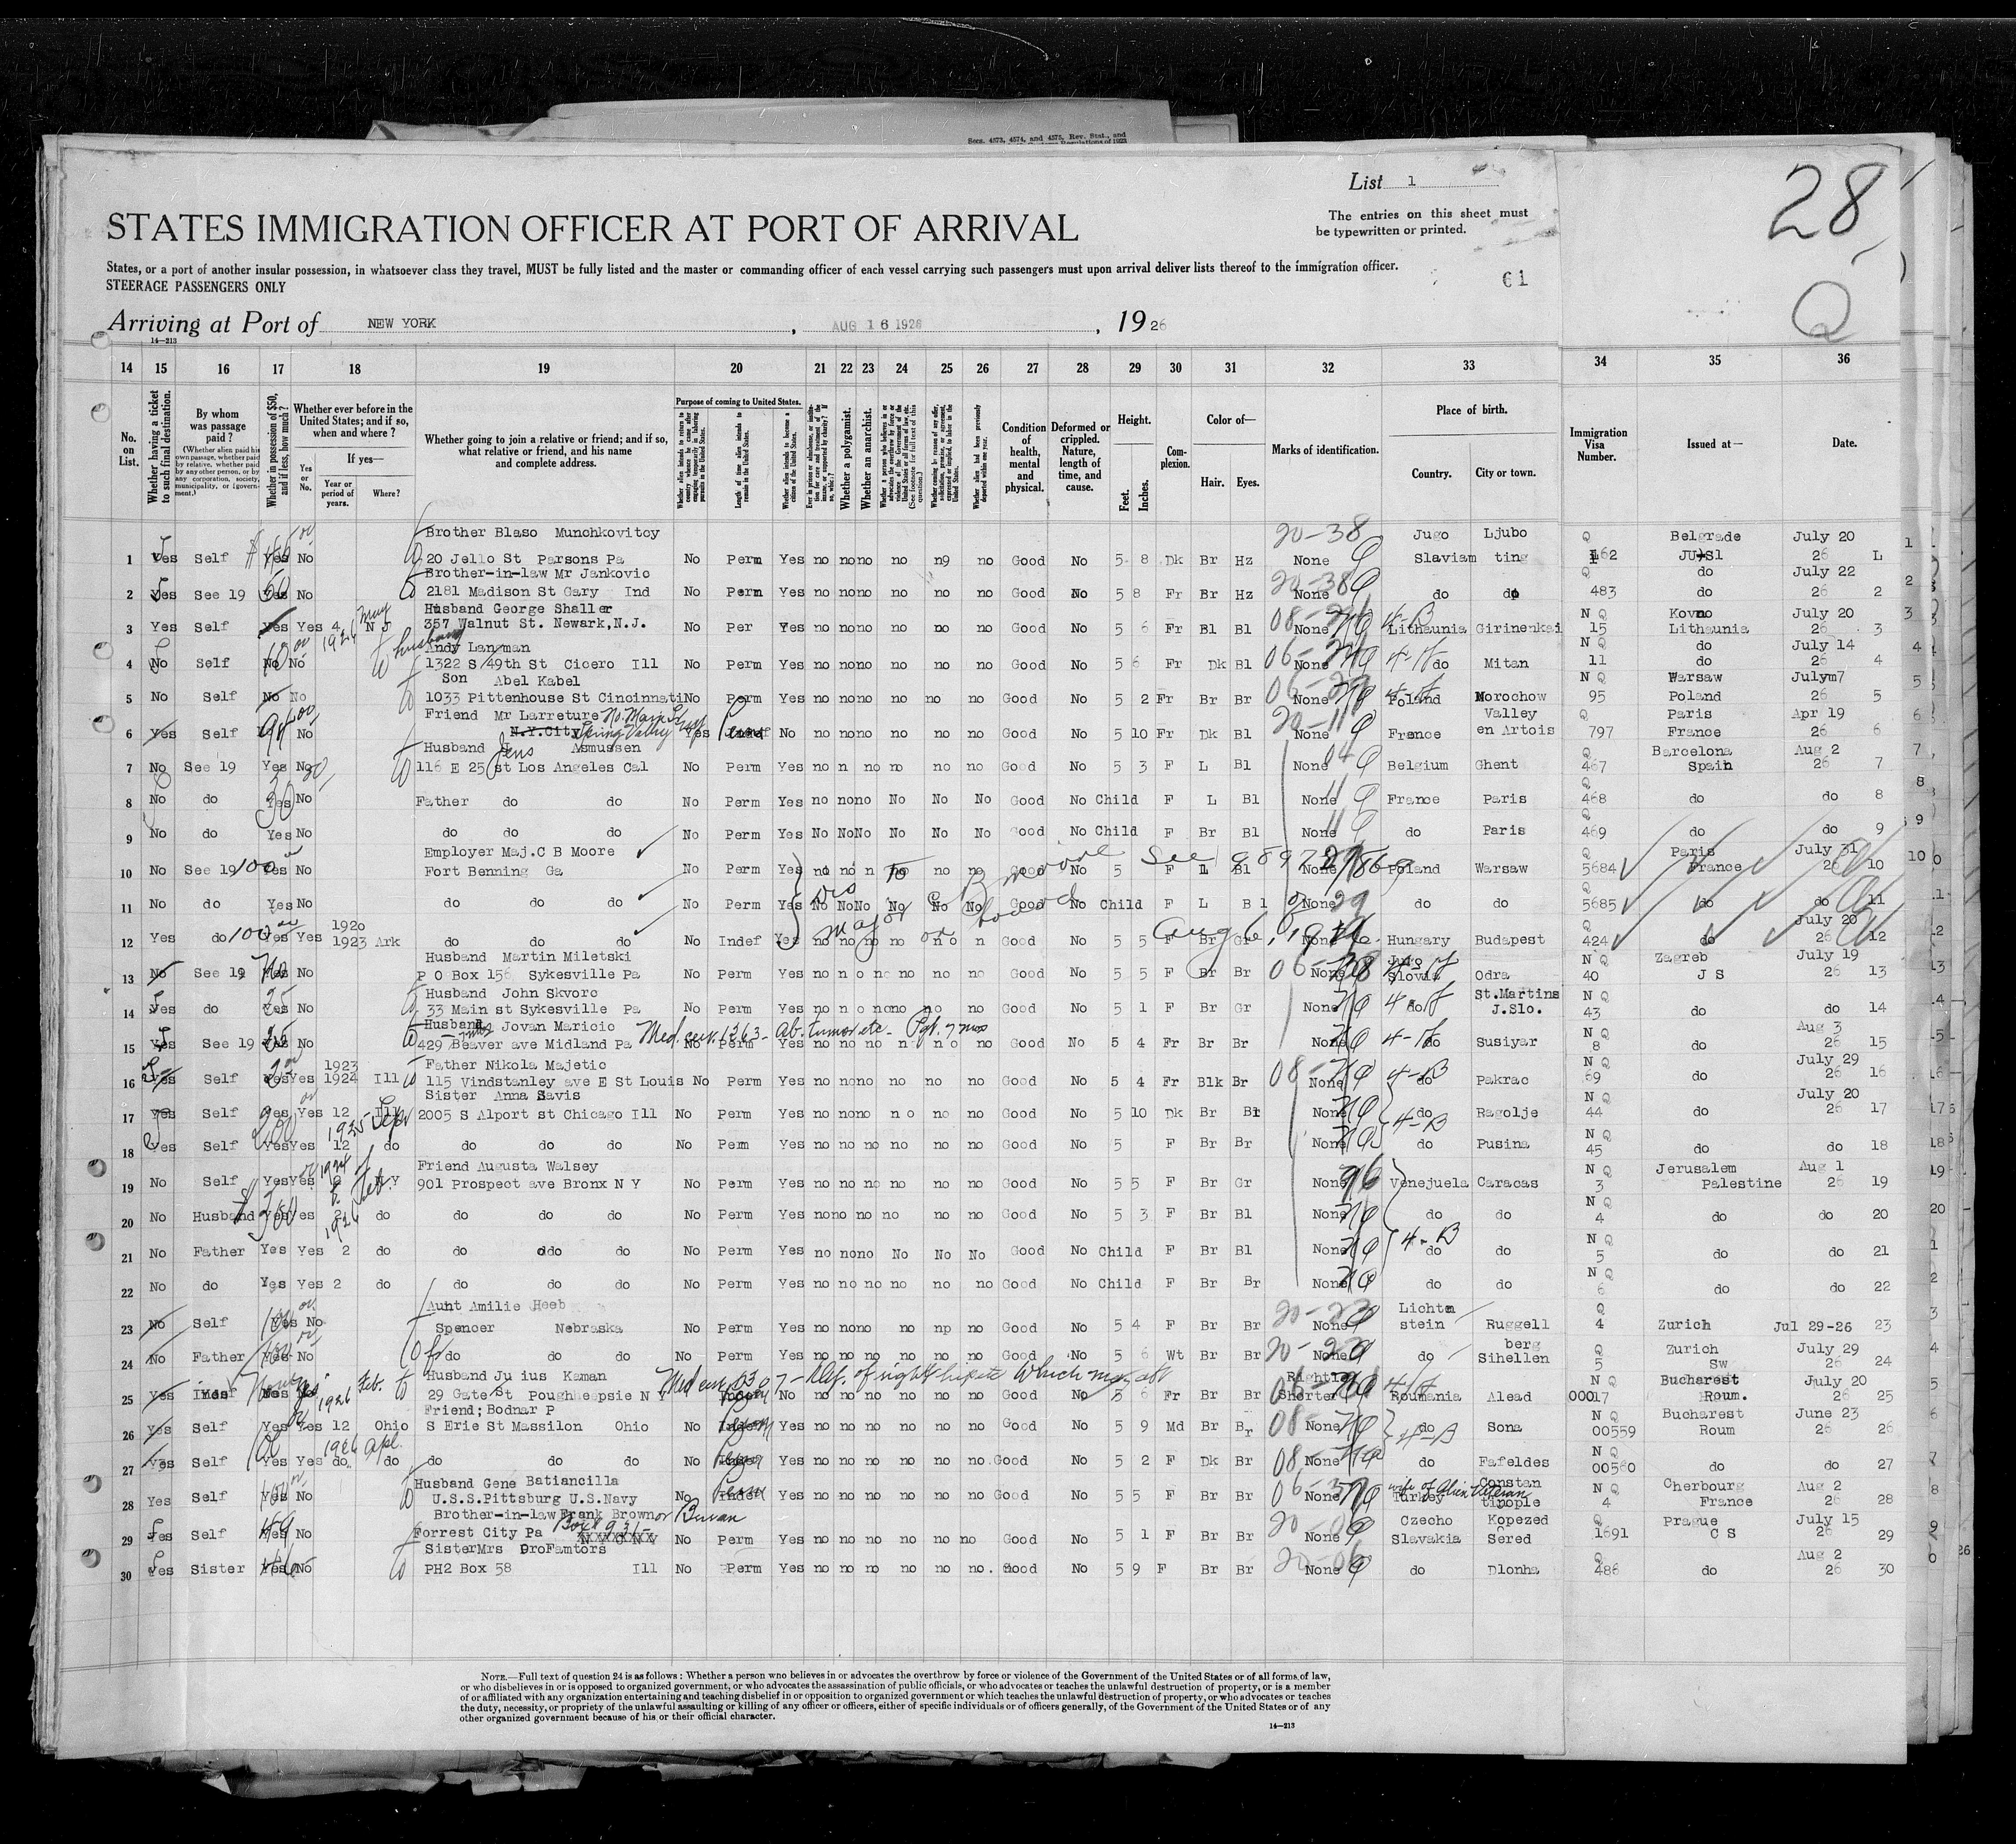 Secs. 4573, 4574, and 4575, Rev. Stat., and
List 1
28
The entries on this sheet must
be typewritten or printed.
STATES IMMIGRATION OFFICER AT PORT OF ARRIVAL
States, or a port of another insular possession, in whatsoever class they travel, MUST be fully listed and the master or commanding officer of each vessel carrying such passengers must upon arrival deliver lists thereof to the immigration officer.
STEERAGE PASSENGERS ONLY
61
Q
Arriving at Port of NEW YORK , AUG 16 1926 , 1926
14—213
14 15 16 17 18 19 20 21 22 23 24 25 26 27 28 29 30 31 32 33 34 35 36
No. on List.
Whether having a ticket to such final destination.
By whom was passage paid?
(Whether alien paid his own passage, whether paid by relative, whether paid by any other person, or by any corporation, society, municipality, or government.)
Whether in possession of $50, and if less, how much?
Whether ever before in the United States; and if so, when and where?
If yes—
Yes or No.
Year or period of years.
Where?
Whether going to join a relative or friend; and if so, what relative or friend, and his name and complete address.
Purpose of coming to United States.
Length of time alien intends to remain in the United States.
Whether alien intends to become a citizen of the United States.
Whether a polygamist.
Whether an anarchist.
Condition of health, mental and physical.
Deformed or crippled. Nature, length of time, and cause.
Height.
Feet.
Inches.
Complexion.
Color of—
Hair.
Eyes.
Marks of identification.
Place of birth.
Country.
City or town.
Immigration Visa Number.
Issued at—
Date.
Brother Blaso Munchkovitcy 20-38 Jugo Ljubo Q Belgrade July 20
1 Yes Self Yes No 20 Jello St Parsons Pa No Perm Yes no no no no n9 no Good No 5 8 Dk Br Hz None Slaviam ting 162 JU-Sl 26 L
Brother-in-law Mr Jankovic 20-38 Q do July 22
2 Yes See 19 Yes No 2181 Madison St Gary Ind No Perm Yes no no no no no no Good No 5 8 Fr Br Hz None do do 483 do 26 2
Husband George Shaller N Q Kovno July 20
3 Yes Self Yes Yes 4 N J 357 Walnut St. Newark,N.J. No Per Yes no no no no no no Good No 5 6 Fr Bl Bl None 4-B Lithuania Girinenkai 15 Lithuania 26 3
husband Andy Langman N Q do July 14
4 No Self No No 1322 S 49th St Cicero Ill No Perm Yes no no no no no no Good No 5 6 Fr Dk Bl None do Mitan 11 do 26 4
Son Abel Kabel N Q Warsaw Julym7
5 No Self No No 1033 Pittenhouse St Cincinnati No Perm Yes no no no no no no Good No 5 2 Fr Br Br None Poland Morochow 95 Poland 26 5
Friend Mr Larreture No. Main St 20-11 Valley Q Paris Apr 19
6 Yes Self No N.Y.City Spring Valley Yes Indef Perm No no no no no no no Good No 5 10 Fr Dk Bl None France en Artois 797 France 26 6
Husband Jens Asmussen Q Barcelona Aug 2
7 No See 19 Yes No 116 E 25 st Los Angeles Cal No Perm Yes no n no no no no Good No 5 3 F L Bl None Belgium Ghent 467 Spain 26 7
8 No do Yes No Father do do No Perm Yes no no no No No No Good No Child F L Bl None France Paris 468 do do 8
9 No do Yes No do do do No Perm Yes No No No No No No Good No Child F Br Bl None do Paris 469 do do 9
Employer Maj.C B Moore Q Paris July 31
10 No See 19 100 Yes No Fort Benning Ga No Perm Yes no no n no no no Good No 5 F L Bl None Poland Warsaw 5684 France 26 10
11 No do Yes No do do do No Perm Yes No No No No No No Good No Child F L Bl None do do 5685 do do 11
1920 July 20
12 Yes do 100 Yes Yes 1923 Ark do do do No Indef Yes no no no no no n Good No 5 5 F Br Gr None Hungary Budapest 424 do 26 12
Husband Martin Miletski Jugo N Q Zagreb July 19
13 No See 19 Yes No P O Box 156 Sykesville Pa No Perm Yes no n o no no no Good No 5 5 F Br Br None Slovia Odra 40 J S 26 13
Husband John Skvorc St.Martins N Q
14 Yes do Yes No 33 Main st Sykesville Pa No Perm Yes no n o no no no no Good No 5 1 F Br Gr None do J.Slo. 43 do do 14
Husband Jovan Maricic N Q Aug 3
15 Yes See 19 Yes No 429 Beaver ave Midland Pa No Perm Yes no no no n no no Good No 5 4 Fr Br Br None do Susiyar 8 do 26 15
1923 Father Nikola Majetic N Q July 29
16 Yes Self Yes Yes 1924 Ill 115 Vindstanley ave E St Louis No Perm Yes no no no no no no Good No 5 4 Fr Blk Br None 4-B do Pakrac 69 do 26 16
Sister Anna Savis N Q July 20
17 Yes Self Yes Yes 12 Ill 2005 S Alport st Chicago Ill No Perm Yes no no no n o no no Good No 5 10 Dk Br Br None do Ragolje 44 do 26 17
18 Yes Self Yes Yes 12 do do do do No Perm Yes no no no no no no Good No 5 F Br Br None do Pusina 45 do do 18
Friend Augusta Walsey N Q Jerusalem Aug 1
19 No Self Yes Yes 2 N Y 901 Prospect ave Bronx N Y No Perm Yes no no no no no no Good No 5 5 F Br Gr None Venejuela Caracas 3 Palestine 26 19
20 No Husband Yes Yes 2 do do do do No Perm Yes no no no no no no Good No 5 3 F Br Bl None do do 4 do do 20
21 No Father Yes Yes 2 do do do do No Perm Yes no no no No No No Good No Child F Br Bl None 4-B do do 5 do do 21
22 No do Yes Yes 2 do do do do No Perm Yes no no no no no no Good No Child F Br Br None do do 6 do do 22
Aunt Amilie Heeb Lichten Q
23 No Self Yes No Spencer Nebraska No Perm Yes no no no no np no Good No 5 4 F Br Br None stein Ruggell 4 Zurich Jul 29-26 23
berg Q Zurich July 29
24 No Father Yes No do do do No Perm Yes no no no no no no Good No 5 6 Wt Br Br None do Sihellen 5 Sw 26 24
Husband Ju ius Kaman Right leg N Q Bucharest July 20
25 Yes 29 Gate St Poughkeepsie N Y No 5 6 Fr Br Br Shorter Roumania Alead 00017 Roum. 26 25
Friend; Bodnar P N Q Bucharest June 23
26 Yes Self Yes Yes 12 Ohio S Erie St Massilon Ohio No Yes no no no no no no Good No 5 9 Md Br Br None do Sona 00559 Roum 26 26
27 Yes Self Yes Yes do do do do do No Yes no no no no no no Good No 5 2 F Dk Br None do Fafeldes 00560 do do 27
Husband Gene Batiancilla wife of Alien Veteran Constan N Q Cherbourg Aug 2
28 Yes Self Yes No U.S.S.Pittsburg U.S.Navy No Indef Perm Yes no no no no no no Good No 5 5 F Br Br None Turkey tinople 4 France 26 28
Brother-in-law Frank Brownor Buvan Czecho Kopezed Q Prague July 15
29 Yes Self Yes No Forrest City Pa Box 931 No Perm Yes no no no no no no Good No 5 1 F Br Br None Slavakia Sered 1691 C S 26 29
SisterMrs DroFamtors Q Aug 2
30 Yes Sister No PH2 Box 58 Ill No Perm Yes no no no no no no. Good No 5 9 F Br Br None do Dlonha 486 do 26 30
NOTE.—Full text of question 24 is as follows: Whether a person who believes in or advocates the overthrow by force or violence of the Government of the United States or of all forms of law,
or who disbelieves in or is opposed to organized government, or who advocates the assassination of public officials, or who advocates or teaches the unlawful destruction of property, or is a member
of or affiliated with any organization entertaining and teaching disbelief in or opposition to organized government or which teaches the unlawful destruction of property, or who advocates or teaches
the duty, necessity, or propriety of the unlawful assaulting or killing of any officer or officers, either of specific individuals or of officers generally, of the Government of the United States or of any
other organized government because of his or their official character.
14—213